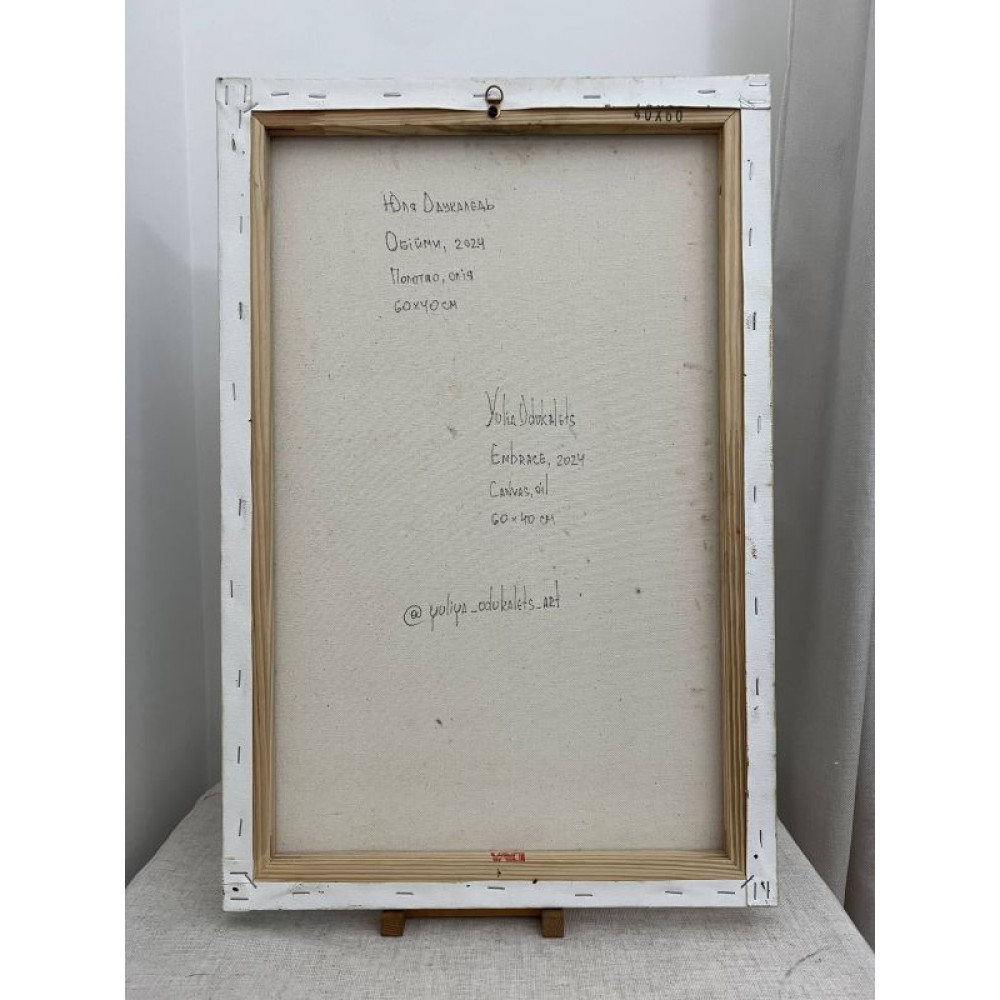 40X60
Юля Одукалець
Обійми, 2024
Полотно, олія
60х40см
Yulia Odukalets
Embrace, 2024
Canvas, oil
60x40 cm
@yuliya_odukalets_art